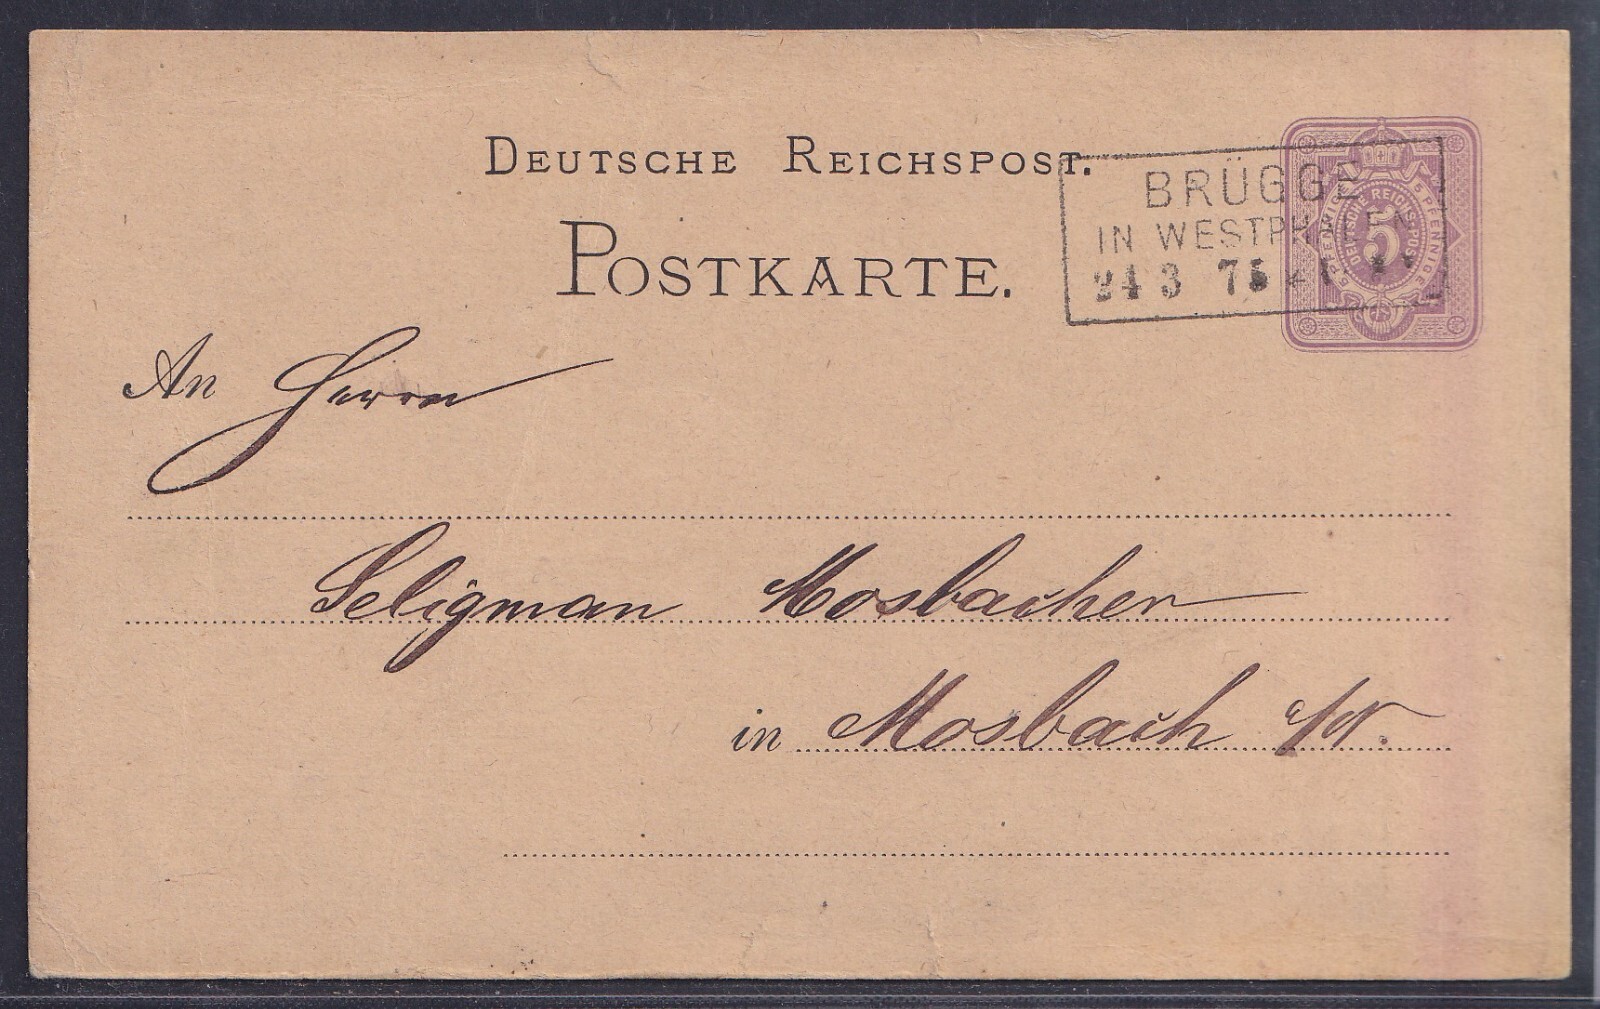 DEUTSCHE REICHSPOST.
POSTKARTE.
BRÜGGE
IN WESTPHALEN
24 3 75
5 PFENNIGE
5 PFENNIGE
DEUTSCHE REICHS-POST
5
An Herrn
Seligman Mosbacher
in Mosbach a/N.